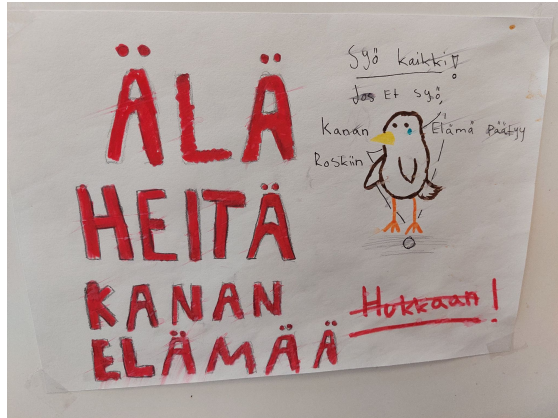 ÄLÄ
HEITÄ
KANAN
ELÄMÄÄ
Hukkaan!
Syö kaikki!
Jos Et syö,
Kanan Elämä Päätyy
Roskiin